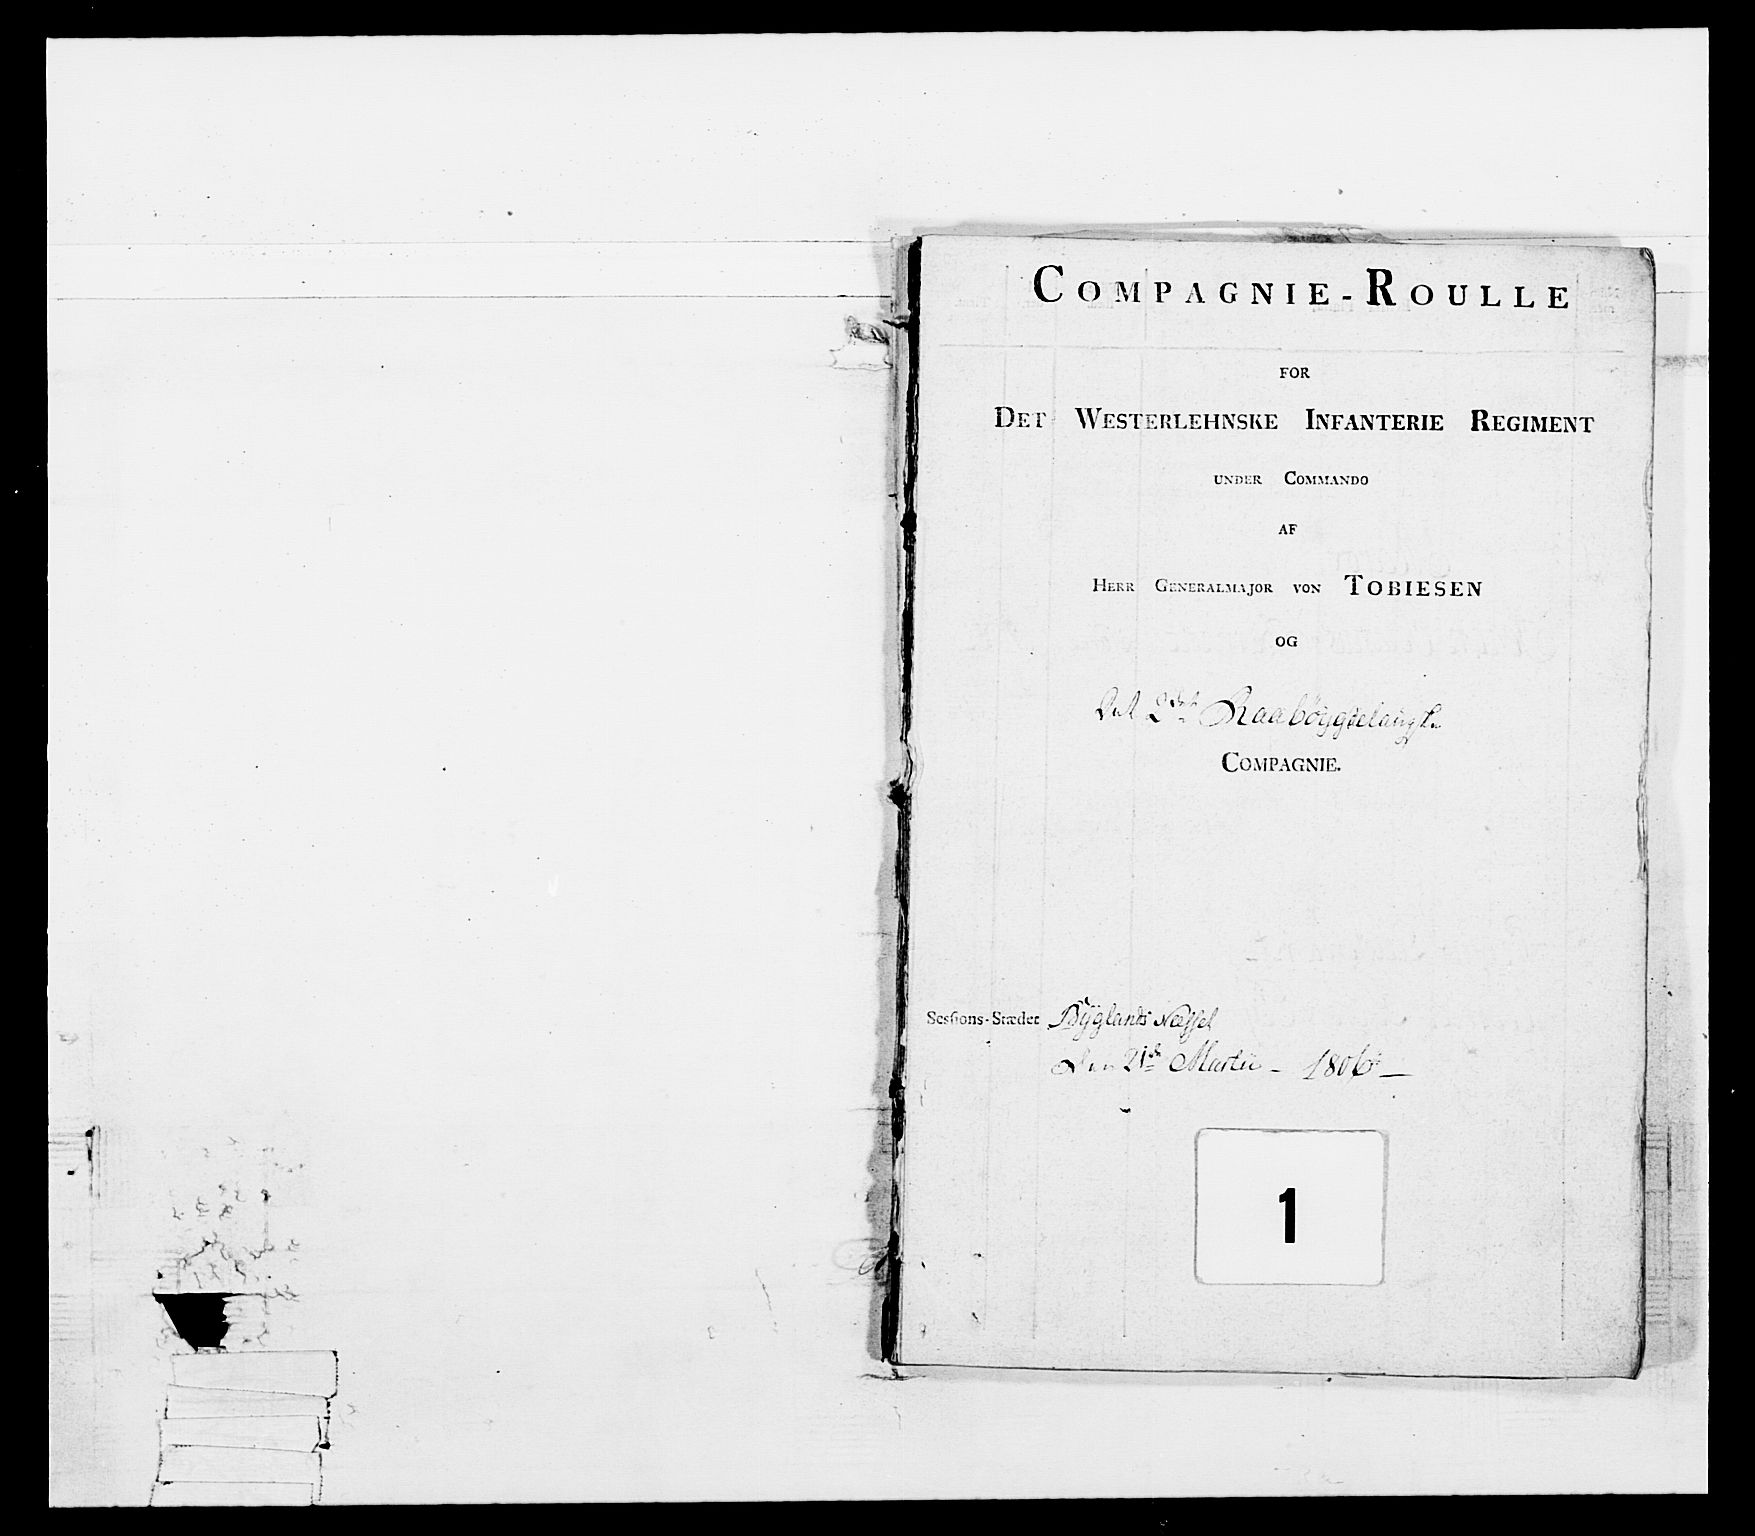 COMPAGNIE-ROULLE
FOR
DET WESTERLEHNSKE INFANTERIE REGIMENT
UNDER COMMANDO
AF
HERR GENERALMAJOR VON TOBIESEN
OG
Det 2det Raabøyggelaugske
COMPAGNIE.
Sessions-Stædet Byglands Næsset
Den 21de Martii - 1806 -
1